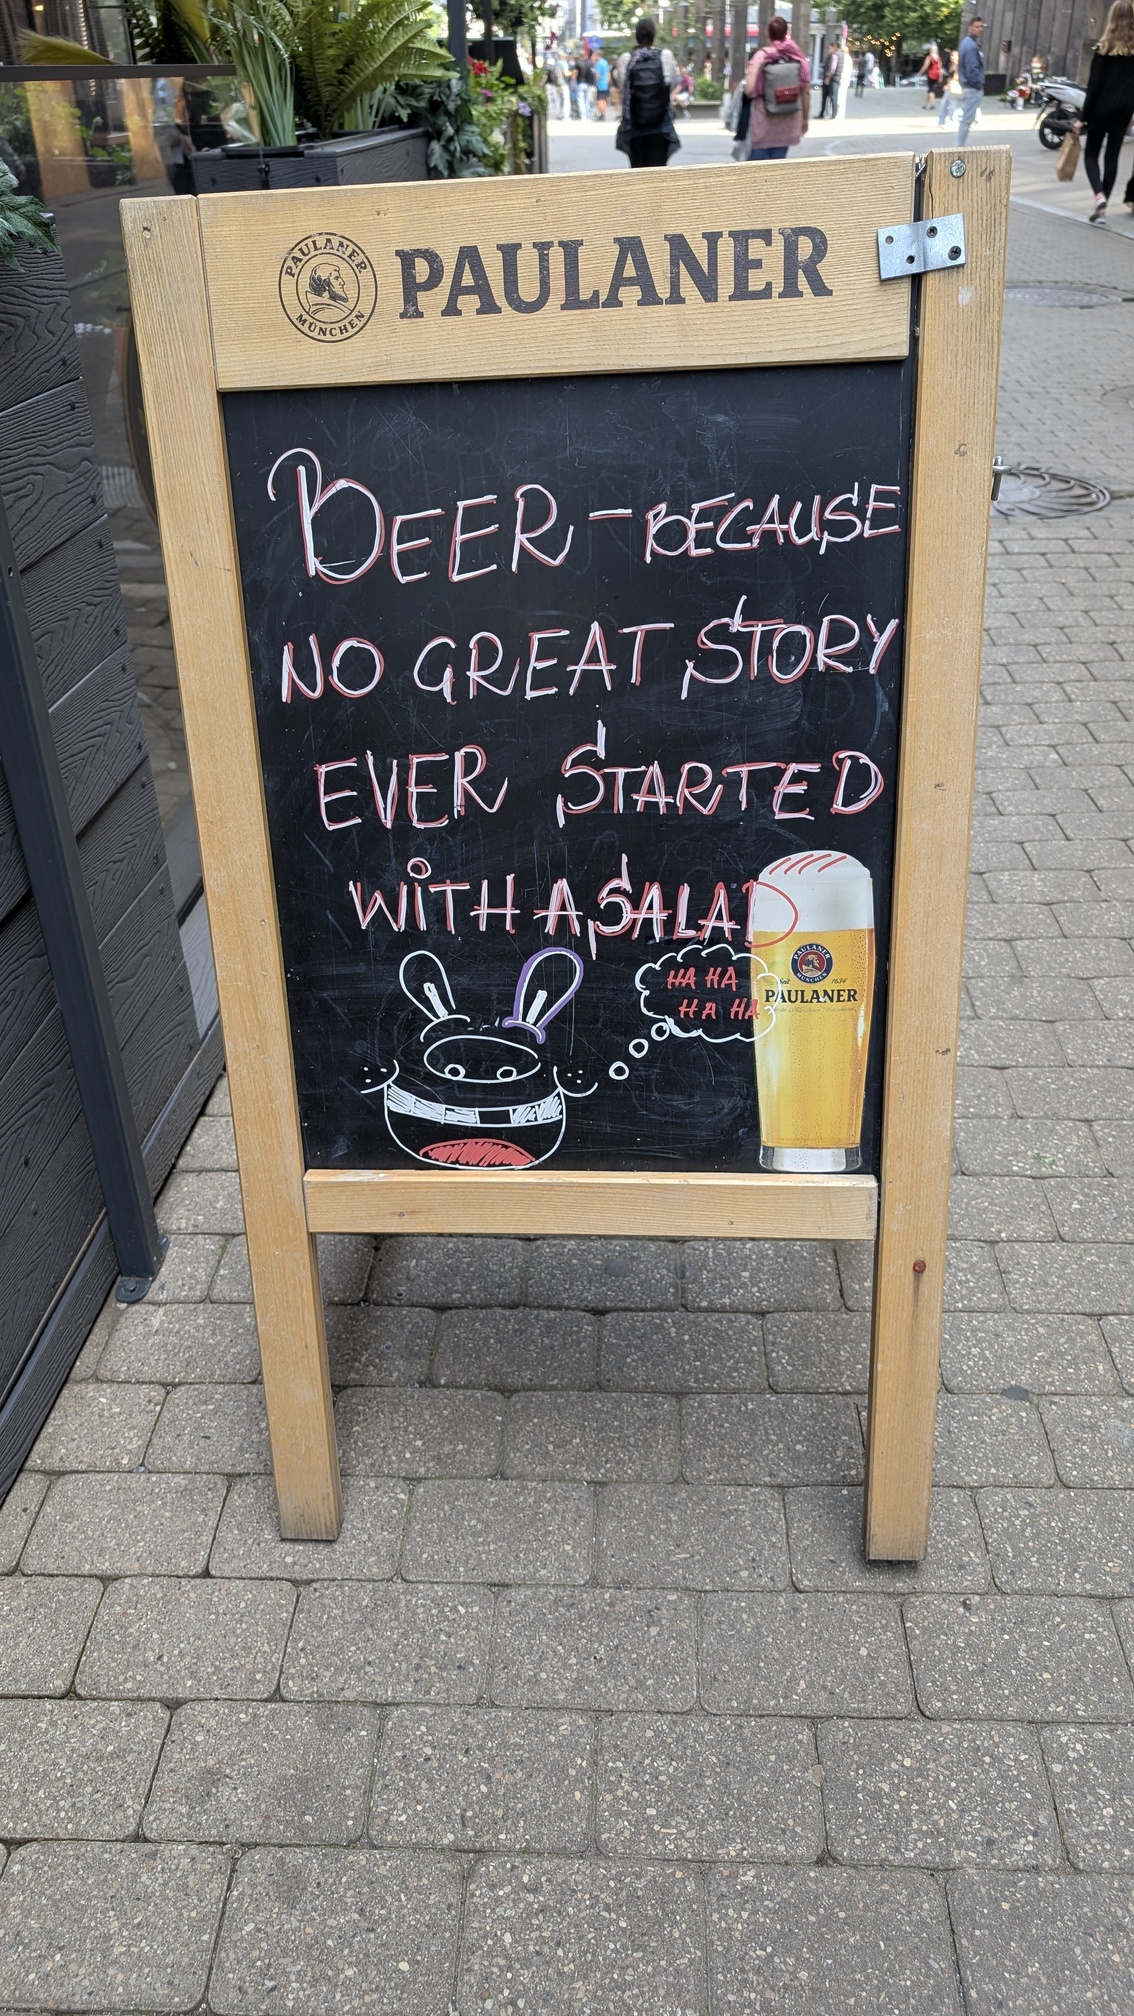 PAULANER MÜNCHEN
PAULANER
BEER - BECAUSE
NO GREAT STORY
EVER STARTED
WiTH A SALAD
HA HA
HA HA
PAULANER MÜNCHEN
1634
PAULANER